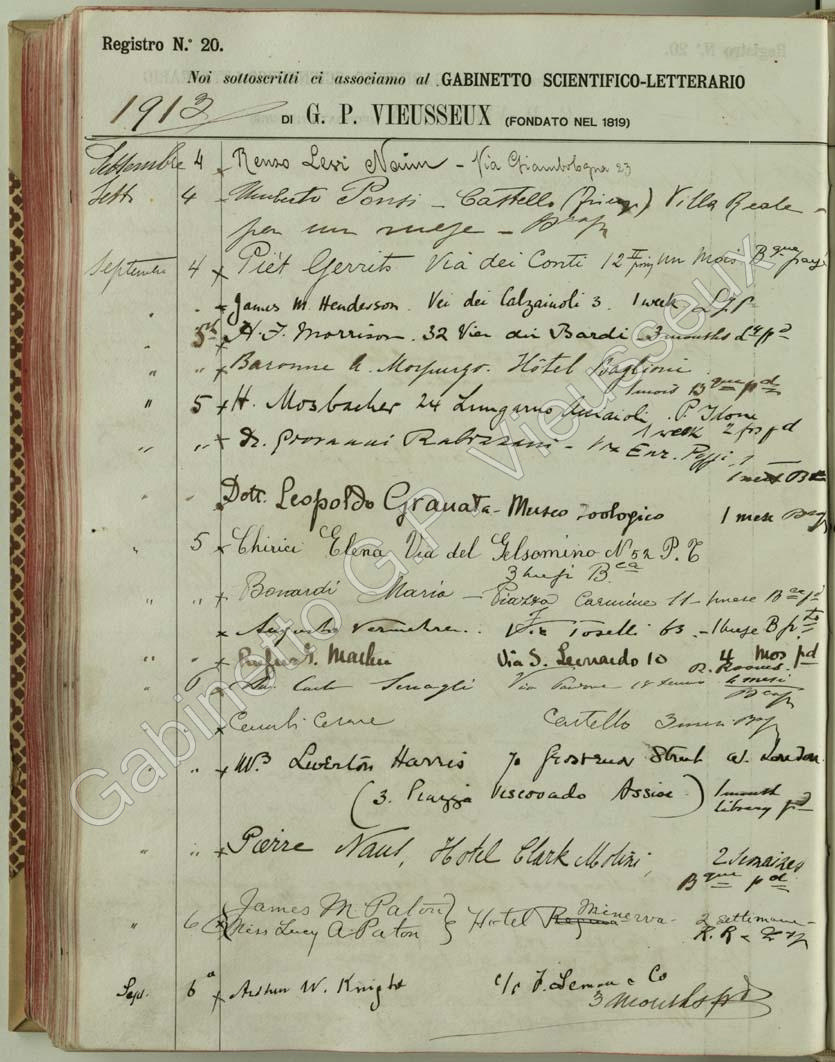 Registro N.° 20.
Noi sottoscritti ci associamo al GABINETTO SCIENTIFICO-LETTERARIO
1913
DI G. P. VIEUSSEUX (FONDATO NEL 1819)
Settembre 4 Renzo Levi Naim - Via Giambologna 23
Sett 4 Umberto Ponsi - Castello (Firenze) Villa Reale
per un mese -
Septembre 4 Piet Gerrits Via dei Conti 12 un Mois Bque payé
" " James M. Henderson. Vei dei Calzaiuoli 3. 1 week
" 5th H. J. Morrison. 32 Via dei Bardi - 3 months pd
" " Baronne A. Morpurgo. Hôtel Baglioni
1 mois Bque pd
" 5 H. Mosbacher 24 Lungarno Acciaioli. P. Idone
1 week 2 frs pd
" " Dr. Giovanni - Via Enr. Poggi, 1
1 mese
" " Dott. Leopoldo Granata - Museo Zoologico 1 mese
" 5 Chirici Elena Via del Gelsomino N 52 P. T
3 mesi Bca
" " Bonardi Maria - Piazza Carmine 11 - 1 mese
Augusto Vermehren. Via Toselli 63. - 1 mese B
" " Rufus G. Mather Via S. Leonardo 10 4 mos pd
R. Rooms.
6 Carlo Via 18 6 mesi
Cesare Castello 3 mesi
" " Wm Leverton Harris 70 Grosvenor Street W. London.
(3. Piazza Vescovado Assisi) 1 month
library pd
" " Pierre Hotel Clark Molini, 2 semaines
Bque pd
" 6 James M Paton
Miss Lucy A. Paton Hotel Regina Minerva - 2 settimane
R. R
Sept. 6 Arthur W. Knight c/o F. Lemon & Co
3 months pd
Gabinetto G.P. Vieusseux